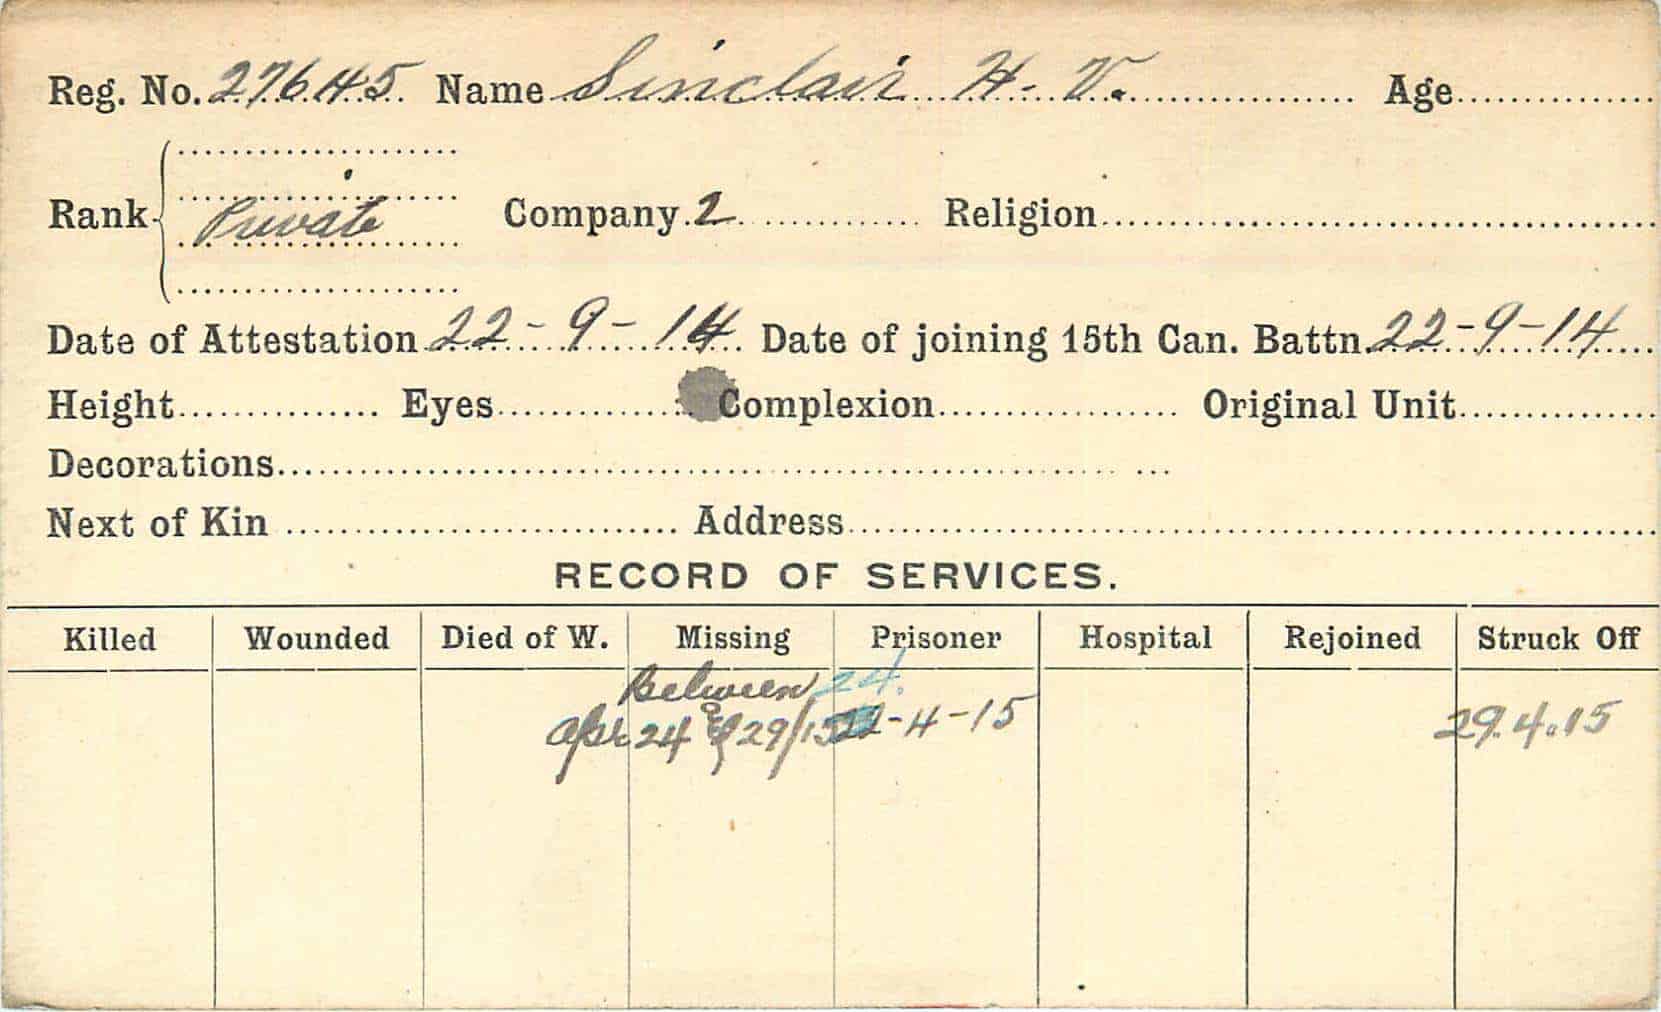 Reg. No. 27645 Name Sinclair H. V. Age
Rank Private Company 2 Religion
Date of Attestation 22-9-14 Date of joining 15th Can. Battn. 22-9-14
Height Eyes Complexion Original Unit
Decorations
Next of Kin Address
RECORD OF SERVICES.
Killed Wounded Died of W. Missing Prisoner Hospital Rejoined Struck Off
Between 24.
Apr 24 & 29/15 22-4-15 29.4.15